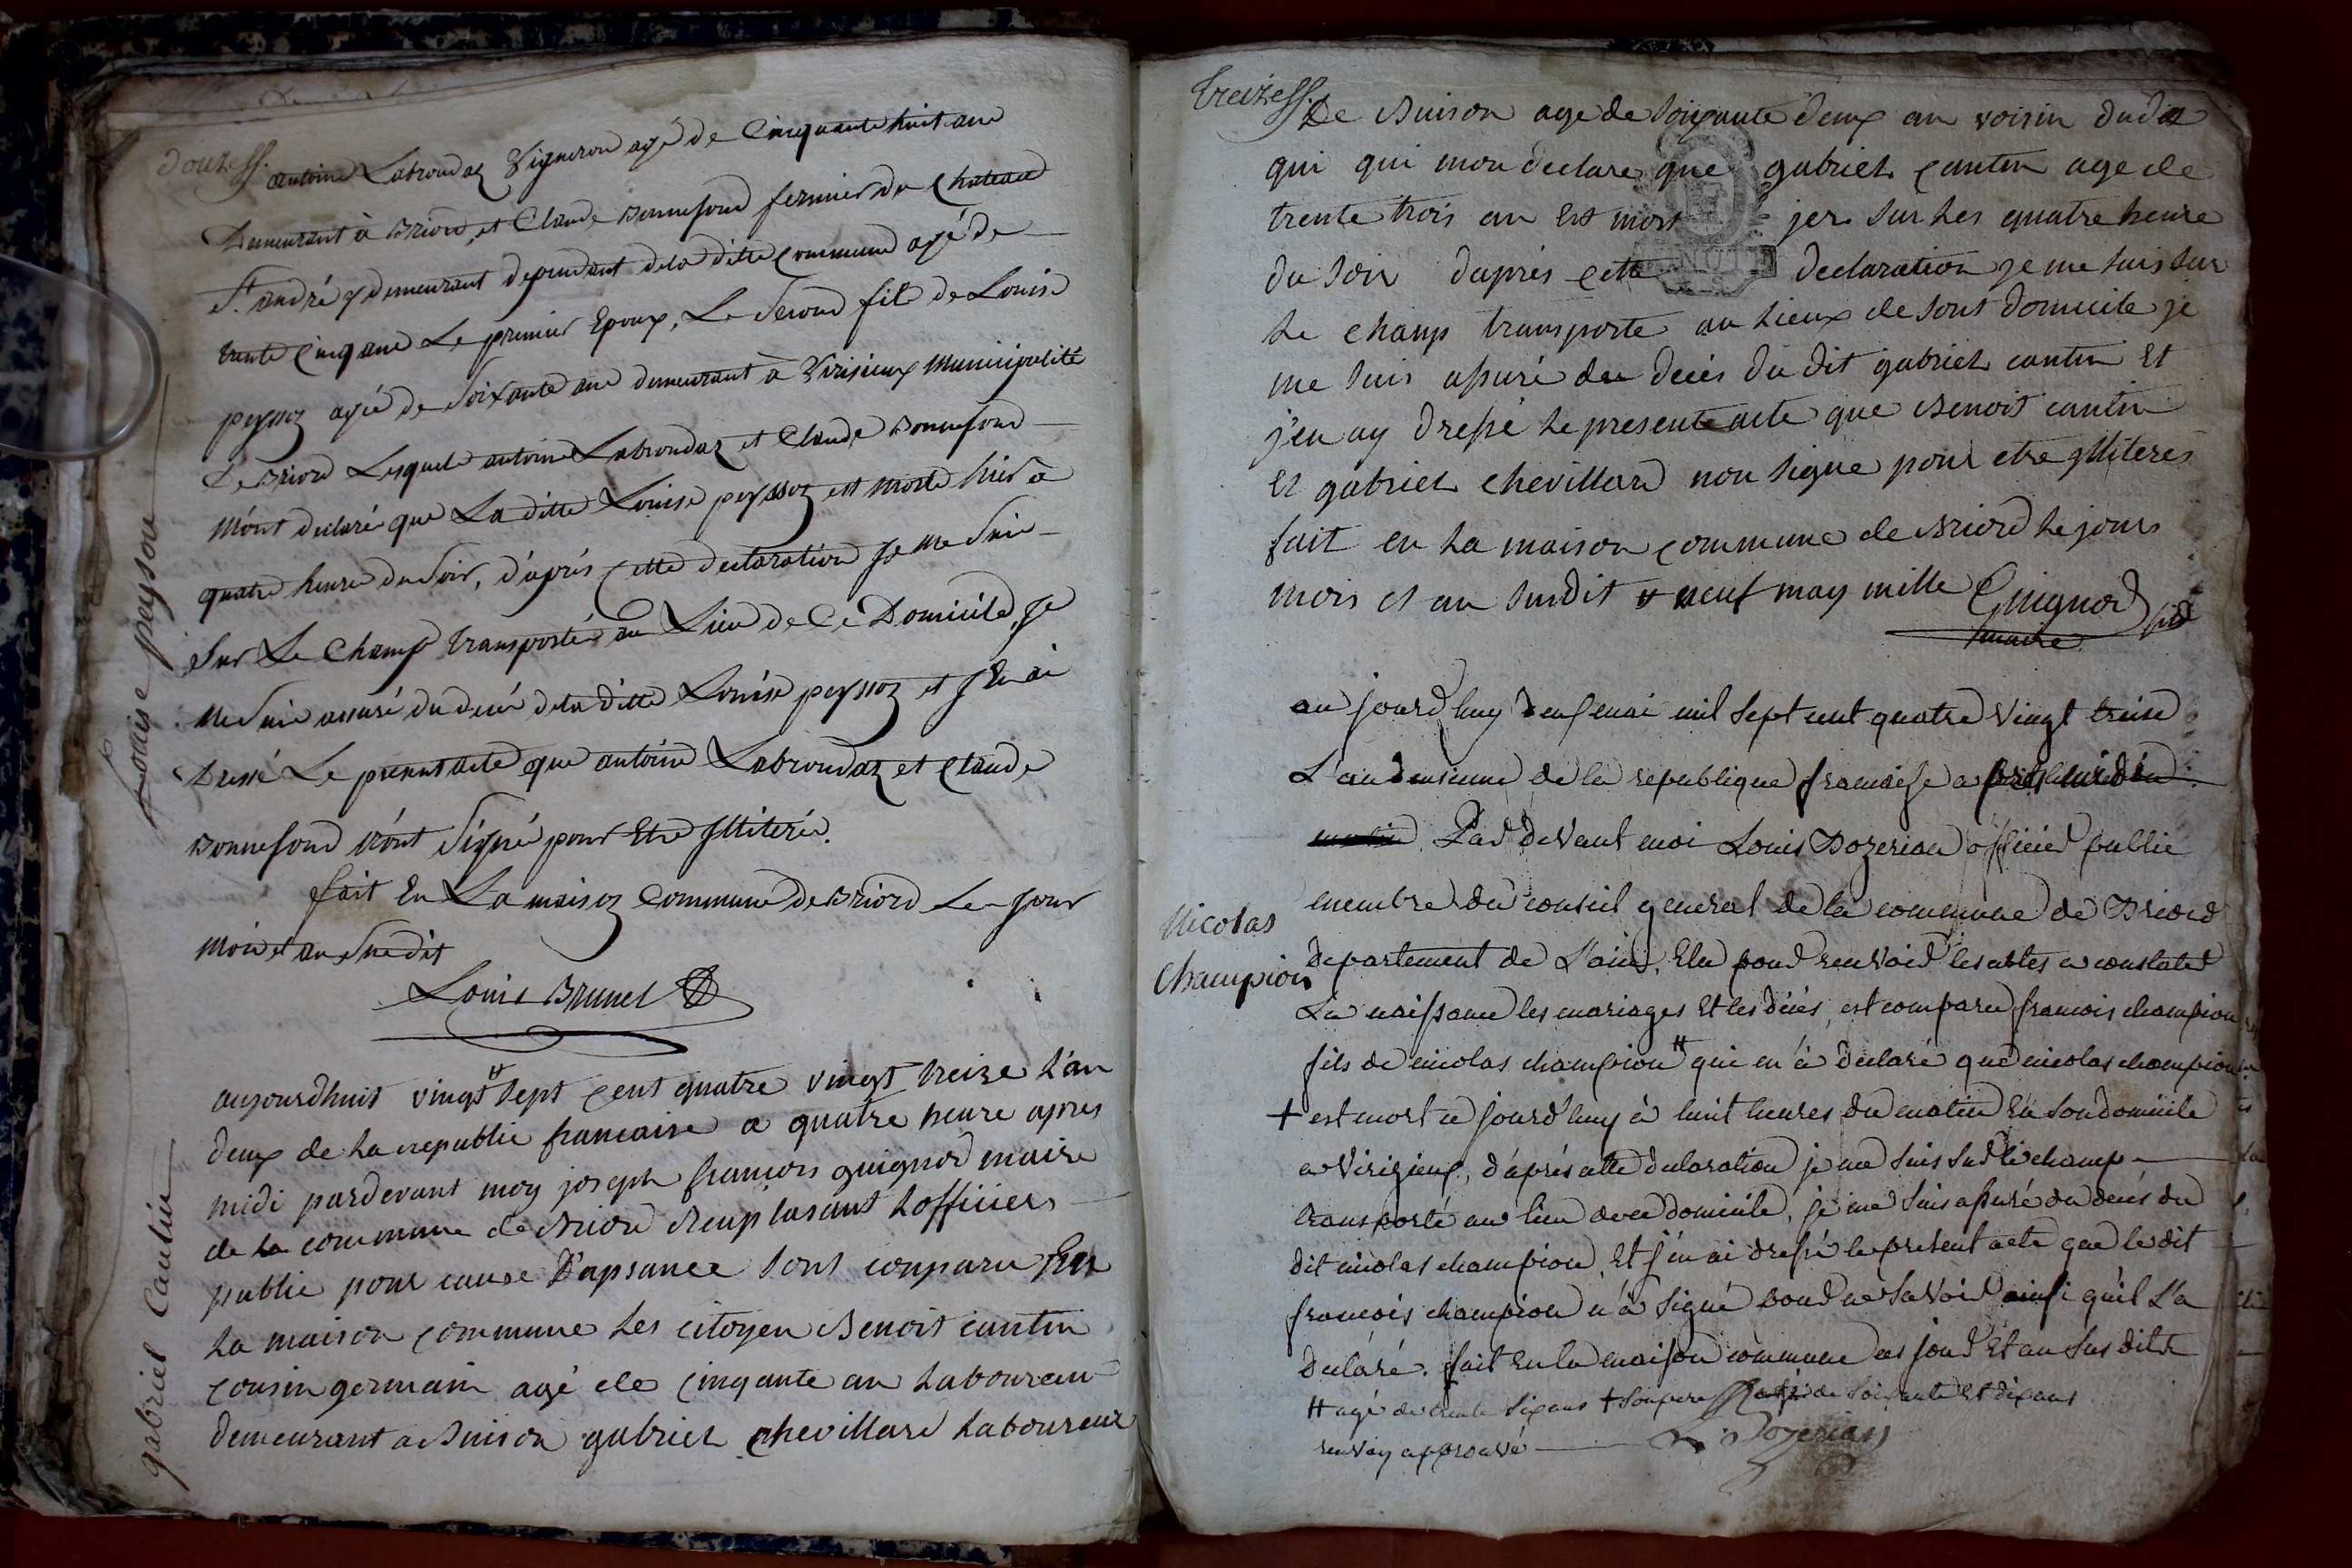 douze ff.
antoine Labroudaz Vigneron agé de Cinquante huit ans
Demeurant à Briord, et Claude Bonnefond fermier du Chateau
St. andré y demeurant dependant dela ditte Commune agé de
trente Cinq ans Le premier Epoux, Le Second fils de Louise
peyssoz agée de Soixante ans demeurant à Virisieux Municipalité
De Briord Lesquels antoine Labroudaz et Claude Bonnefond
m'ónt declaré que La ditte Louise peyssoz est morte hier a
quatre heures du Soir, d'aprés Cette declaration Je me Suis
Sur Le Champ transporté au Lieu de Ce Domicile, Je
me Suis assuré du decés dela ditte Louise peyssoz et J'En ai
Dressé Le present acte que antoine Labroudaz et Claude
Bonnefond n'ónt Signé pour Etre Jlliterés.
fait En La maison Commune de Briord Le Jour
Mois et an Susdit
Louis Brunet
Louise peyson
aujourdhuit vingt # sept cent quatre vingt treize L'an
deux de La republic francaise a quatre heure apres
midi pardevant moy joseph francois guignod maire
de la commune de Briord Remplasant Lofficier
public pour cause D'apsance sont conparu En
La maison commune Les citoyen Benoit cantin
cousin germain agé de cinqante an Laboureur
demeurant a Buison gabriel chevillard Laboureur
gabriel Cantin
treize ff.
De Buison age de soixante deux an voisin dudit
qui qui mon declare que gabriel cantin age de
trente trois an Est mort jer sur Les quatre heure
du soir dapres cette declaration je me suis sur
Le champ transporte au Lieux de sont domicile je
me suis asuré du decés du dit gabriel cantin Et
j'en ay dressé Le presente acte que Benoit cantin
Et gabriel chevillard non signe pour etre illiteres
fait en La maison commune de Briord Le jours
mois et an susdit # neuf may mille Guignod
maire
aujourd'huy Neuf mai mil sept cent quatre vingt treise
L'an deusieme de la republique francaise
Par devant moi Louis Dozerian officier public
membre du conseil general de la commune de Briord
departement de L'ain, Elu pour recevoir les actes a constater
La naissance les mariages Et les décés, est comparu francois champion
fils de nicolas champion # qui m'à declaré que nicolas champion
+ est mort ce jourd'huy à huit heures du matin En son domicile
a Virizieux, d'aprés cette declaration je me suis sur le champ
transporté au lieu de ce domicile, je me suis assuré du decés du
dit nicolas champion, Et j'en ai dressé le present acte que le dit
francois champion n'à signé pour ne savoir ainsi qu'il L'a
declaré. fait En la maison commune les jour Et an sus dits
# agé de trente six ans + son pere agé de soixante Et dix ans
renvoy approuvé Dozerian
Nicolas
Champion